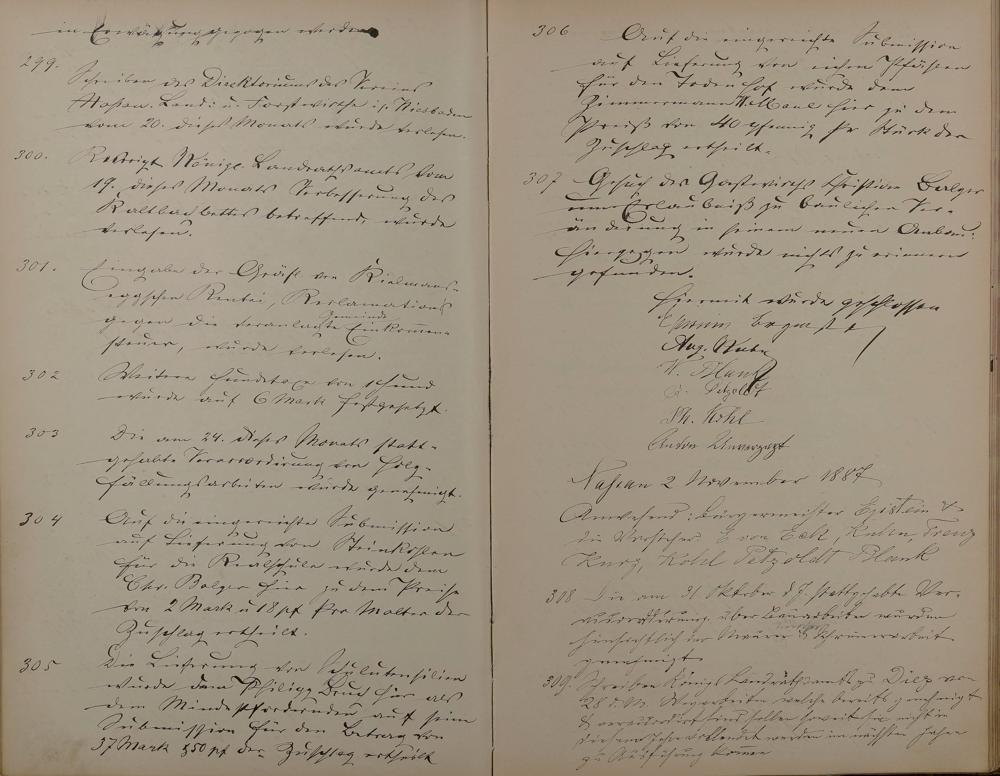 in Erwägung gezogen werden
299.
Schreiben des Direktoriums des Vereins
Nassau. Land- u. Forstwirthe in Wiesbaden
vom 20. dieses Monats wurde verlesen.
300. Rescript Königl. Landrathsamts vom
19. dieses Monats Verbesserung des
Kaltbachbettes betreffend wurde
verlesen.
301. Eingabe der Gräfl. von Kielmans-
eggschen Rentei, Reclamations
gegen die veranlagte Gemeinde Einkommen
steuer, wurde verlesen.
302 Weitere Hundetaxe von 1 Hund
wurde auf 6 Mark festgesetzt.
303 Die am 24. dieses Monats statt-
gehabte Veraccordirung von Holz-
fällungsarbeiten wurde genehmigt.
304 Auf die eingereichte Submission
auf Lieferung von Steinkohlen
für die Realschule wurde dem
Chr. Balzer hier zu dem Preise
von 2 Mark u 18 pf pro Malter der
Zuschlag ertheilt.
305 Die Lieferung von Schulutensilien
wurde dem Philipp Bruch hier als
dem Mindestfordernden auf seine
Submission für den Betrag von
57 Mark 50 pf der Zuschlag ertheilt
306 Auf die eingereichte Submission
auf Lieferung von eichen Pfählen
für den Todenhof wurde dem
Zimmermann W. Maul hier zu dem
Preiß von 40 Pfennig pr Stück der
Zuschlag ertheilt.
307 Gesuch des Gastwirths Christian Balzer
um Erlaubniß zu baulicher Ver-
änderung in seinem neuen Anbau:
Hiergegen wurde nichts zu erinnern
gefunden.
Hiermit wurde geschlossen
Aug. Kuhn
W. Blank
Petzoldt
Ph. Kohl
Anton Unverzagt
Nassau 2 November 1887
Anwesend: Bürgermeister Epstein &
die Vorsteher von Eck, Kuhn, Trenz
Kurz, Kohl Petzoldt Blank
308 Die am 31 Oktober d J. stattgehabte Ver-
accordirung über Bauarbeiten wurden
hinsichtlich der Maurer & Schreinerarbeit
genehmigt
309. Schreiben Königl Landrathsamts zu Diez vom
28 v. M. Wegarbeiten welche bereits genehmigt
& veraccordirt sind sollen soweit sie nicht in
diesem Jahre vollendet werden im nächsten Jahre
zu Ausführung kommen